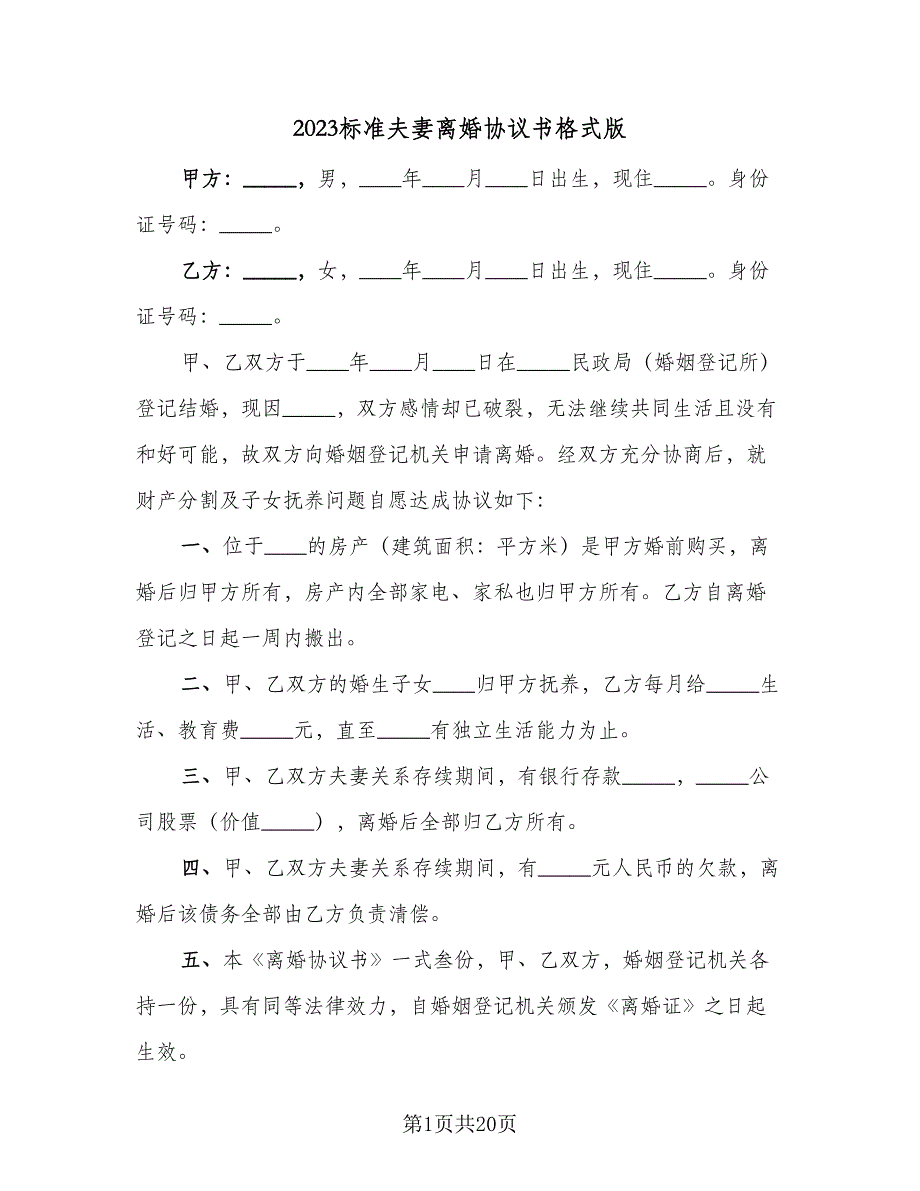 2023标准夫妻离婚协议书格式版
甲方：_____，男，____年____月____日出生，现住_____。身份
证号码：_____。
乙方：_____，女，____年____月____日出生，现住_____。身份
证号码：_____。
甲、乙双方于____年____月____日在_____民政局（婚姻登记所）
登记结婚，现因_____，双方感情却已破裂，无法继续共同生活且没有
和好可能，故双方向婚姻登记机关申请离婚。经双方充分协商后，就
财产分割及子女抚养问题自愿达成协议如下：
一、位于____的房产（建筑面积：平方米）是甲方婚前购买，离
婚后归甲方所有，房产内全部家电、家私也归甲方所有。乙方自离婚
登记之日起一周内搬出。
二、甲、乙双方的婚生子女____归甲方抚养，乙方每月给_____生
活、教育费_____元，直至_____有独立生活能力为止。
三、甲、乙双方夫妻关系存续期间，有银行存款_____，_____公
司股票（价值_____），离婚后全部归乙方所有。
四、甲、乙双方夫妻关系存续期间，有_____元人民币的欠款，离
婚后该债务全部由乙方负责清偿。
五、本《离婚协议书》一式叁份，甲、乙双方，婚姻登记机关各
持一份，具有同等法律效力，自婚姻登记机关颁发《离婚证》之日起
生效。
第1页共20页